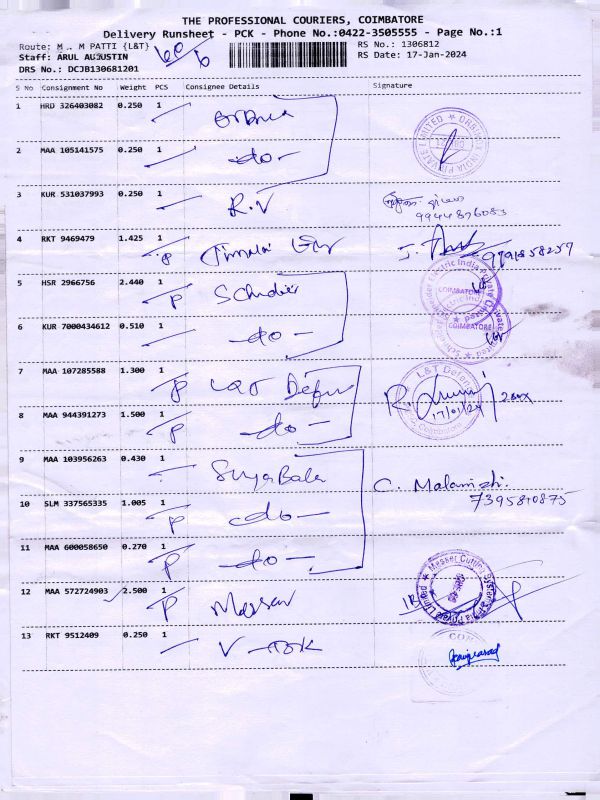 THE PROFESSIONAL COURIERS, COIMBATORE
Delivery Runsheet - PCK - Phone No.:0422-3505555 - Page No.:1
Route: M . M PATTI {L&T}
RS No.: 1306812
Staff: ARUL AUJUSTIN
RS Date: 17-Jan-2024
DRS No.: DCJB130681201
S No Consignment No Weight PCS Consignee Details Signature
1 HRD 326403082 0.250 1
2 MAA 105141575 0.250 1 -do-
3 KUR 531037993 0.250 1 R.V
9944876083
4 RKT 9469479 1.425 1 P
9791858259
5 HSR 2966756 2.440 1 P
COIMBATORE
6 KUR 7000434612 0.510 1 -do-
COIMBATORE
7 MAA 107285588 1.300 1 P L&T Defen
L&T Defence
Coimbatore
17/01/24
8 MAA 944391273 1.500 1 P -do-
9 MAA 103956263 0.430 1 Surya Bala
C. Malarvizhi.
7395840875
10 SLM 337565335 1.005 1 P -do-
11 MAA 600058650 0.270 1 P -do-
12 MAA 572724903 2.500 1 P Messer
Messer Cutting Systems India Private Limited
13 RKT 9512409 0.250 1